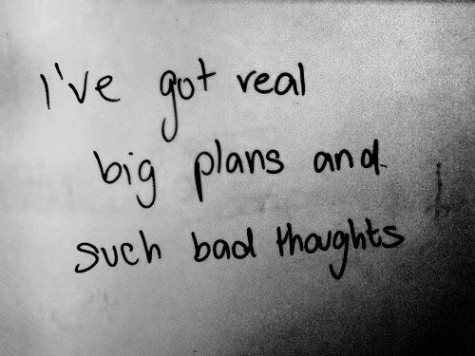 I've got real
big plans and
such bad thoughts